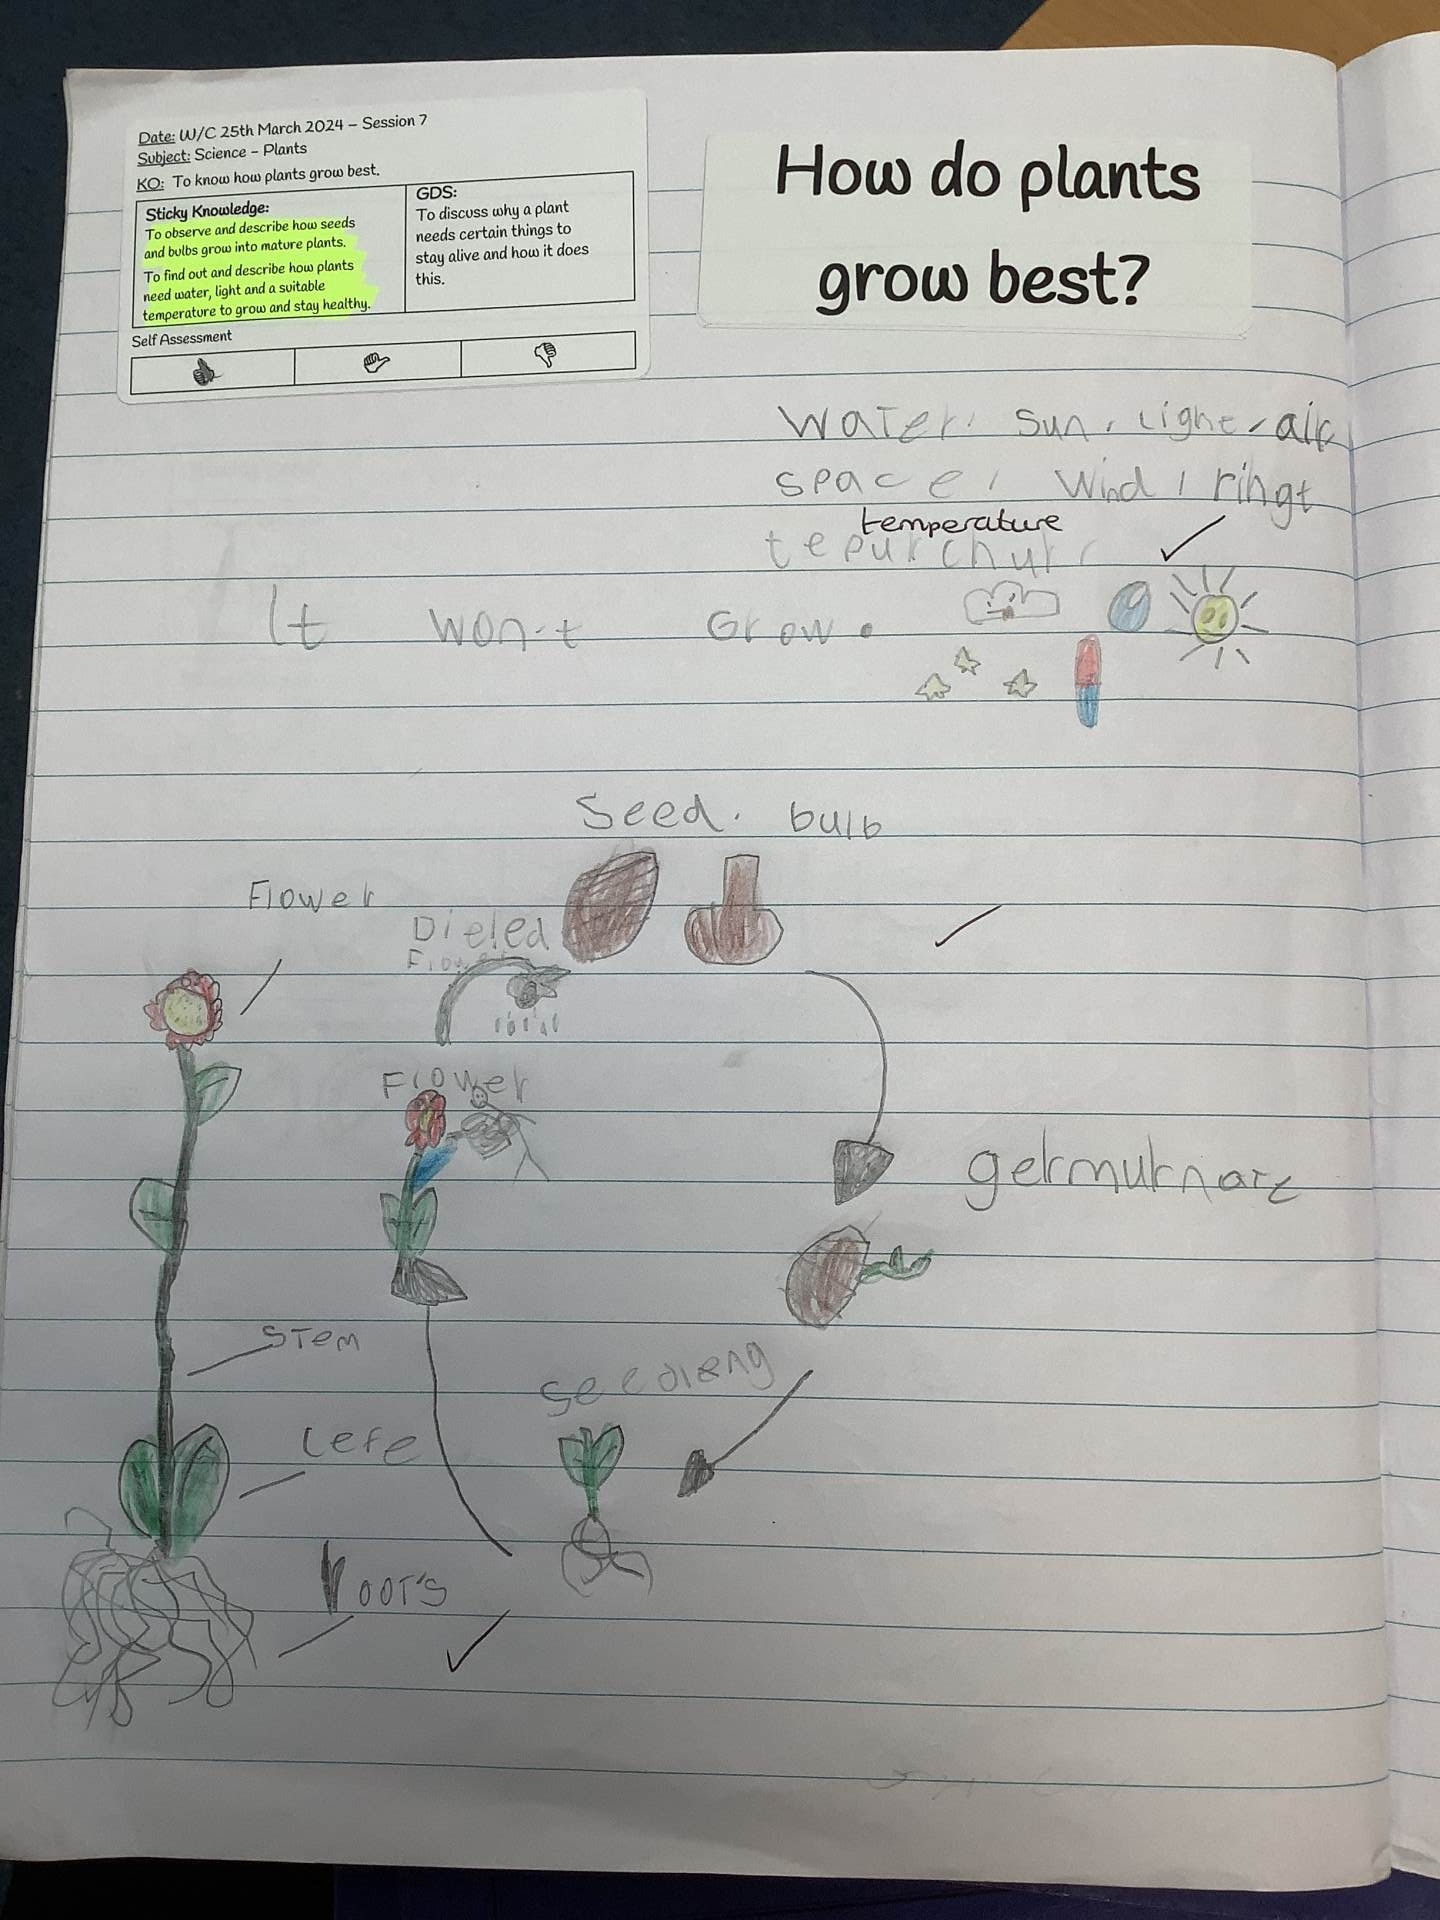 Date: W/C 25th March 2024 – Session 7
Subject: Science – Plants
KO: To know how plants grow best.
Sticky Knowledge:
To observe and describe how seeds
and bulbs grow into mature plants.
To find out and describe how plants
need water, light and a suitable
temperature to grow and stay healthy.
GDS:
To discuss why a plant
needs certain things to
stay alive and how it does
this.
Self Assessment
How do plants
grow best?
water. sun, light, air
space, wind, ringt
temperature
tepurchure
It won't Grow.
Seed. bulb
Flower
Dieled
Flower
Flower
germurnate
Stem
Seedleng
Lefe
roots